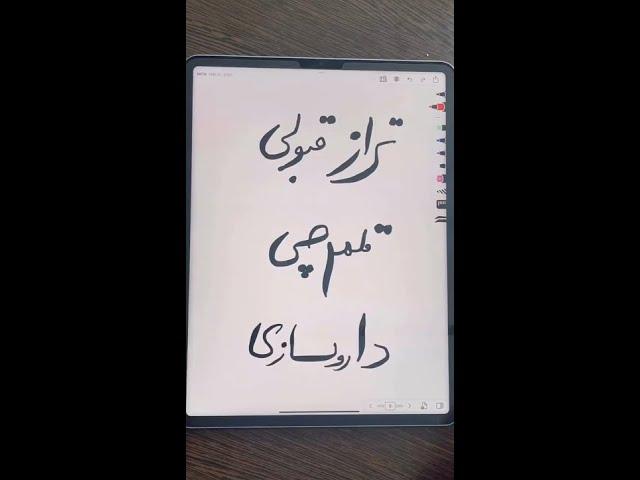 تراز قبولی
قلمچی
داروسازی